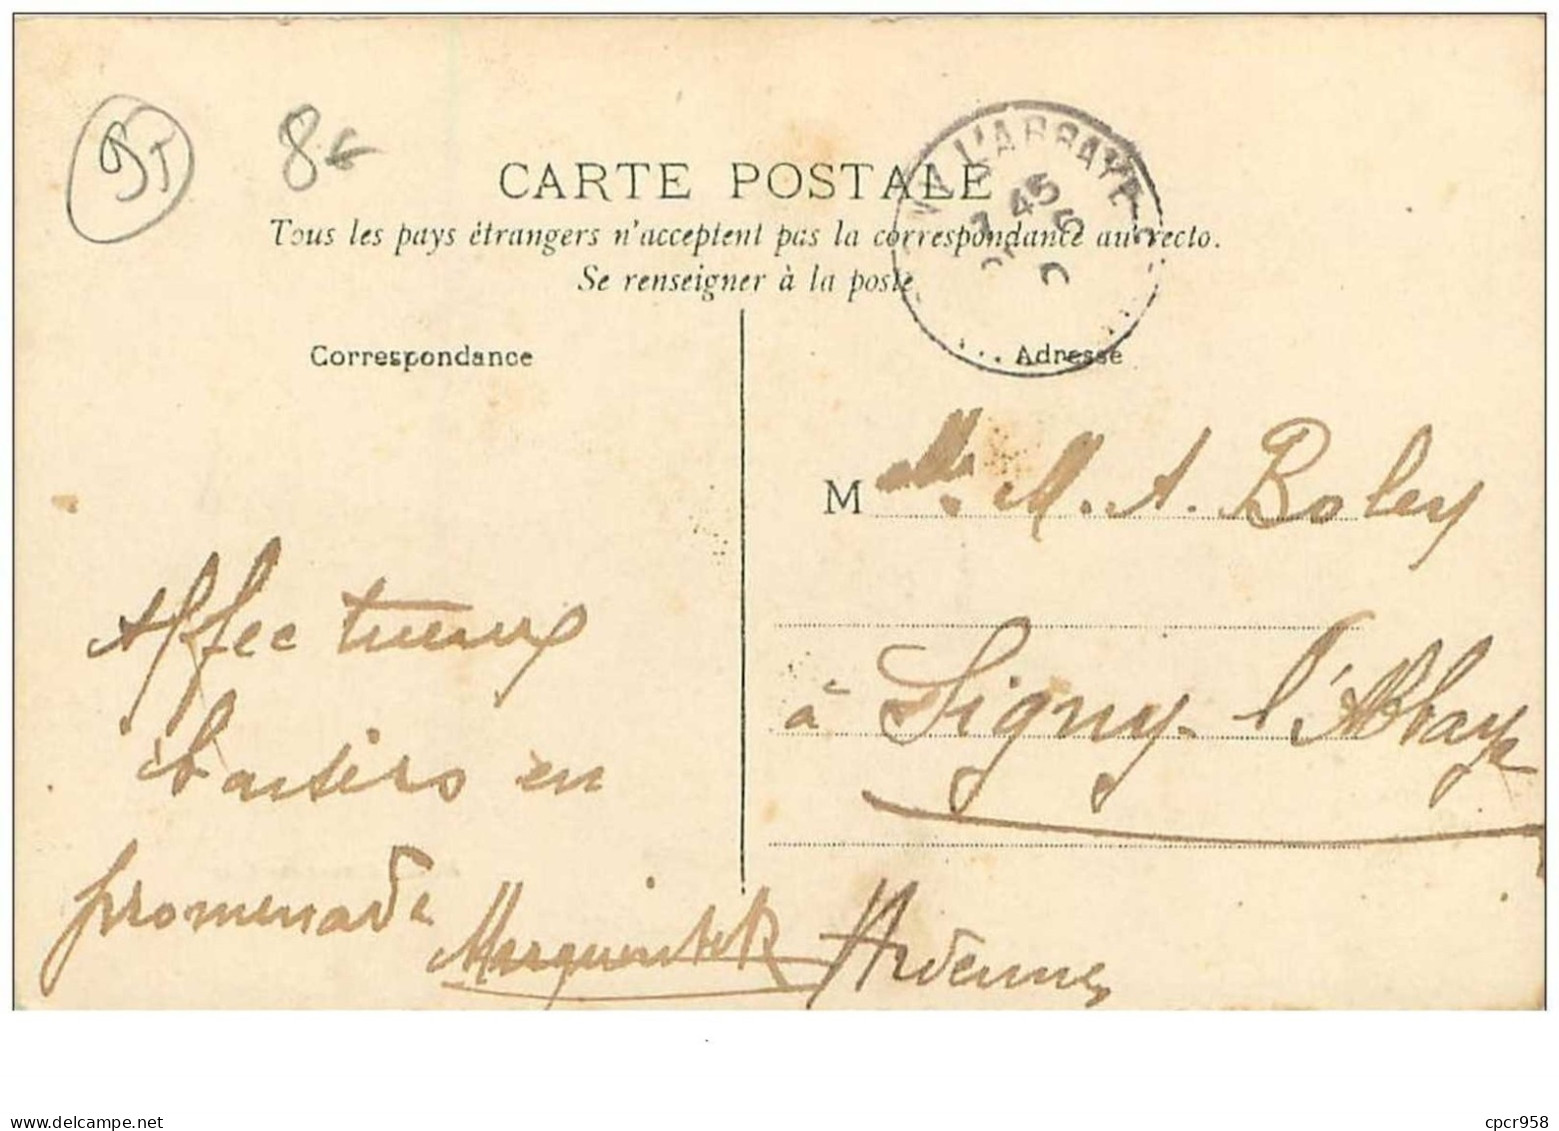 8€
CARTE POSTALE
Tous les pays étrangers n'acceptent pas la correspondance au recto.
Se renseigner à la poste
NY L'ABBAYE
7 45
Correspondance
Adresse
Affectueux
baisers en
promenade
M M. A. Boley
à Signy-l'Abbaye
Ardennes
www.delcampe.net
cpcr958